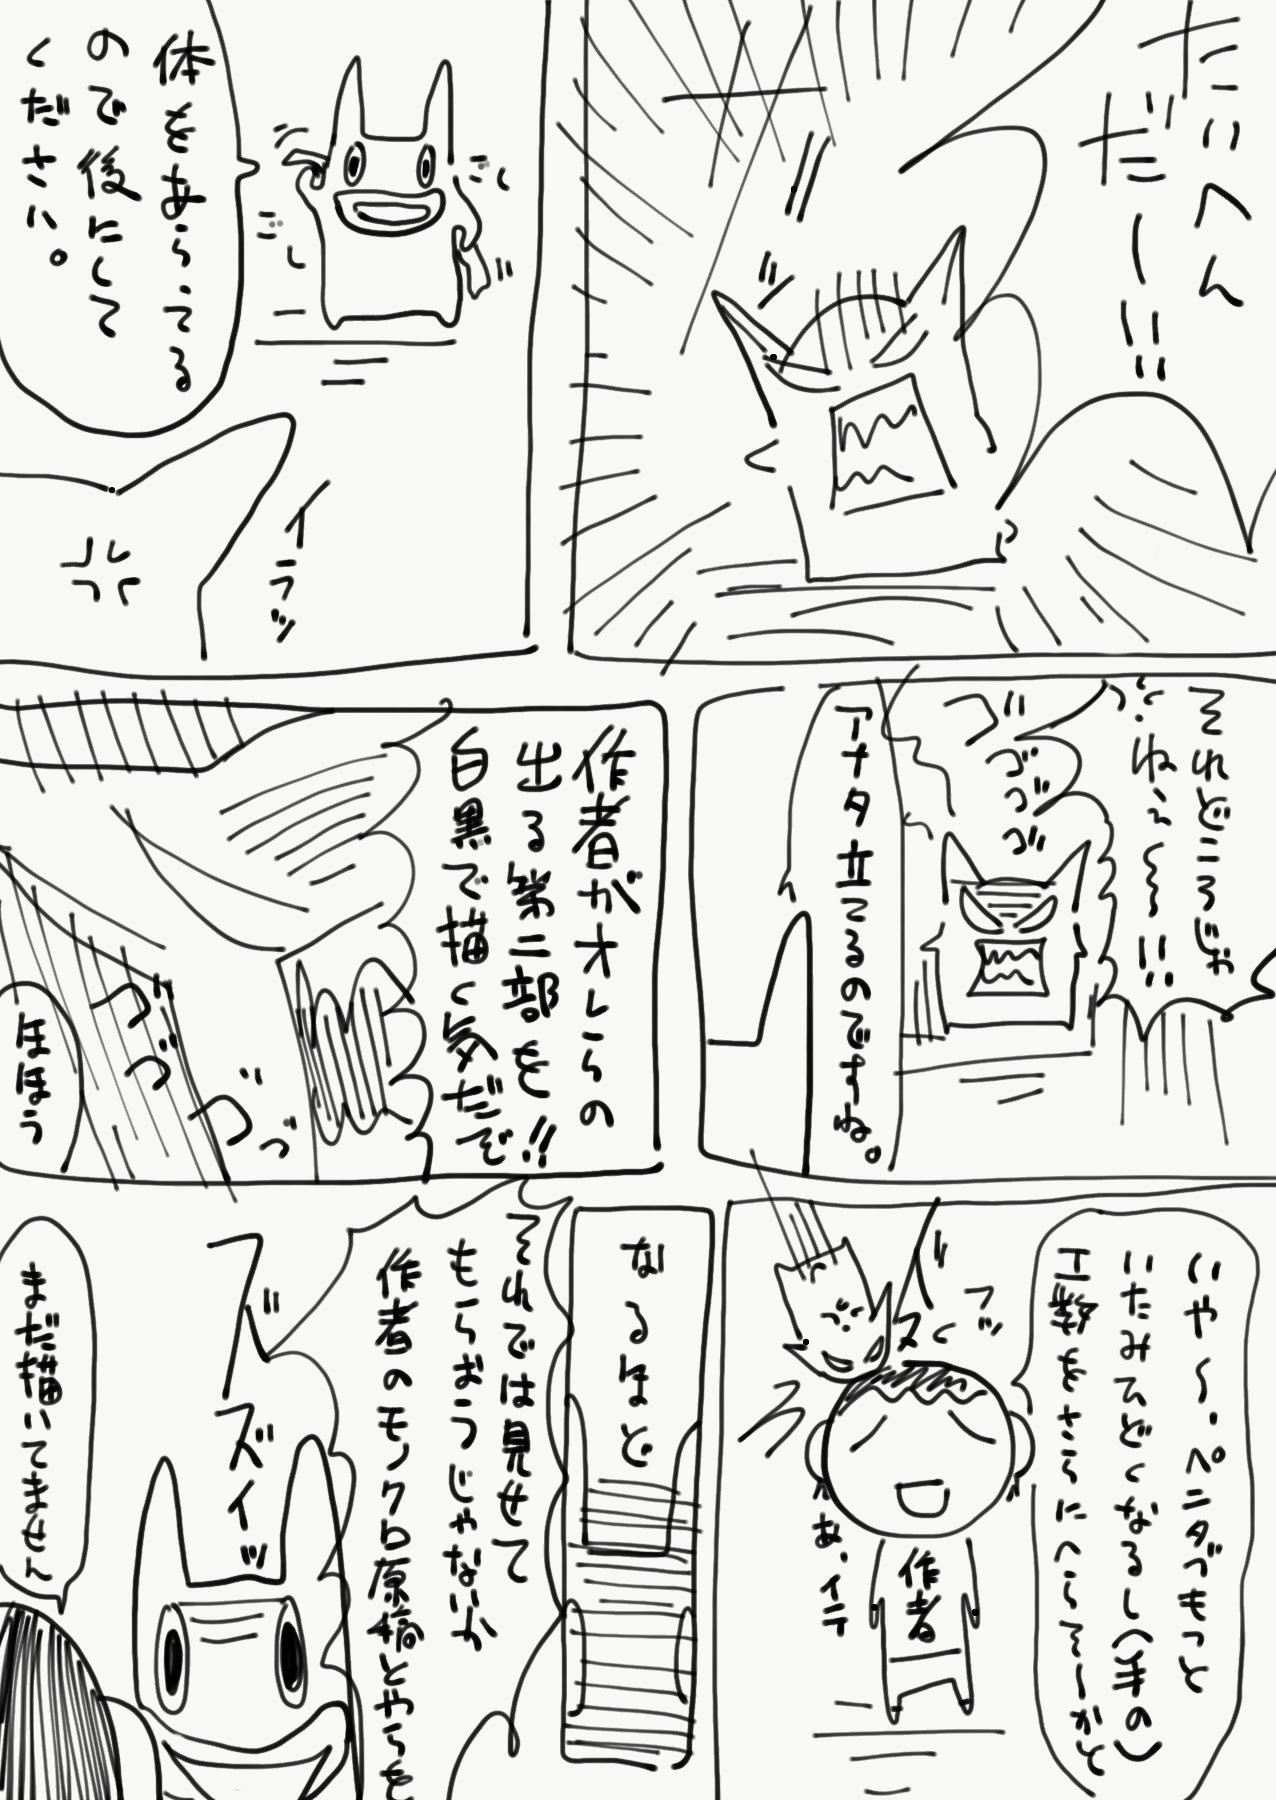 たいへん
だーー!!
体をあらってる
ので後にして
ください。
ゴシ
ゴシ
イラッ
それどころじゃ
ねぇ〜〜!!
アナタ立てるのですね。
作者がオレらの
出る第二部を!!
白黒で描く気だぞ
ほほう
いや〜、ペンタブもっと
いたみひどくなるし(手の)
工数をさらにへらしてーかと
作者
あ、イテ
なるほど
それでは見せて
もらおうじゃないか
作者のモノクロ原稿とやらを
ズイッ
まだ描いてません